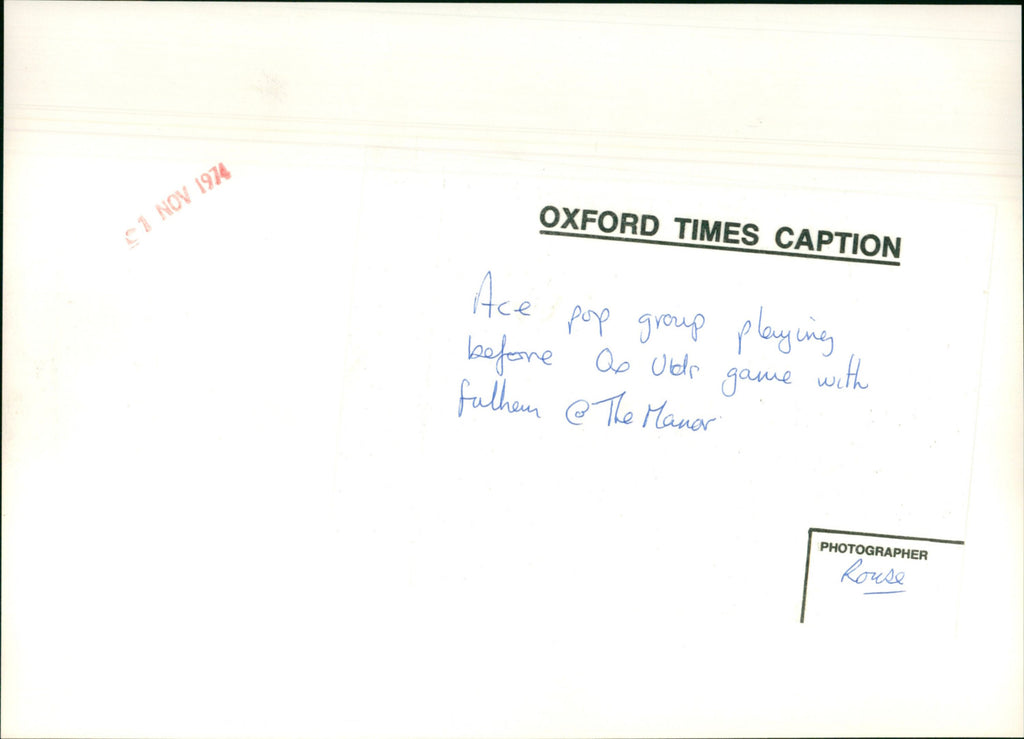 NOV 1974
OXFORD TIMES CAPTION
Ace pop group playing
before Ox Utd game with
Fulham @ The Manor
PHOTOGRAPHER
Rouse